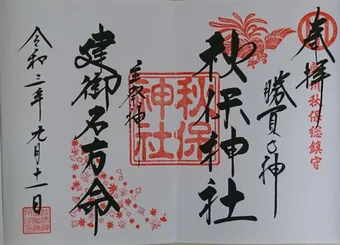 奉拝
秋保総鎮守
勝負の神
秋保神社
秋保
神社
主祭神
建御名方命
令和三年元月十一日